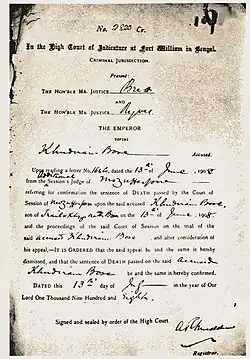 No. 2820 Cr.
In the High Court of Judicature at Fort William in Bengal.
CRIMINAL JURISDICTION.
Present:
THE HON'BLE MR. JUSTICE Brett
AND
THE HON'BLE MR. JUSTICE Ryves
THE EMPEROR
versus
Khudiram Bose Accused.
Upon reading a letter No. dated the 13th of June 1908
from the Additional Sessions Judge of Mozufferpore
referring for confirmation the sentence of DEATH passed by the Court of
Session of Mozufferpore upon the said accused Khudiram Bose
son of on the 13th of June 1908
and the proceedings of the said Court of Session on the trial of the
said accused Khudiram Bose and after consideration of
his appeal,—It is ORDERED that the said appeal be and the same is hereby
dismissed, and that the sentence of DEATH passed on the accused
Khudiram Bose be and the same is hereby confirmed.
DATED this 13th day of July in the year of Our
Lord One Thousand Nine Hundred and Eight.
Signed and sealed by order of the High Court.
Registrar.